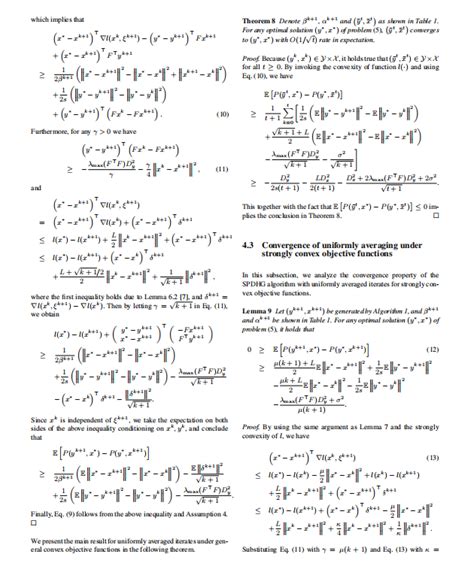 which implies that
(x* − x^{k+1})^⊤ ∇l(x^k, ξ^{k+1}) − (y* − y^{k+1})^⊤ Fx^{k+1}
+ (x* − x^{k+1})^⊤ F^⊤y^{k+1}
≥ 1/(2β^{k+1}) (‖x* − x^{k+1}‖² − ‖x* − x^k‖² + ‖x^k − x^{k+1}‖²)
+ 1/(2s) (‖y* − y^{k+1}‖² − ‖y* − y^k‖²)
+ (y* − y^{k+1})^⊤ (Fx^k − Fx^{k+1}). (10)
Furthermore, for any γ > 0 we have
(y* − y^{k+1})^⊤ (Fx^k − Fx^{k+1})
≥ − λmax(F^⊤F)D²_y/γ − γ/4 ‖x^k − x^{k+1}‖², (11)
and
(x* − x^{k+1})^⊤ ∇l(x^k, ξ^{k+1})
= (x* − x^{k+1})^⊤ ∇l(x^k) + (x* − x^{k+1})^⊤ δ^{k+1}
≤ l(x*) − l(x^{k+1}) + L/2 ‖x^k − x^{k+1}‖² + (x* − x^{k+1})^⊤ δ^{k+1}
≤ l(x*) − l(x^{k+1}) + (x* − x^k)^⊤ δ^{k+1}
+ (L + √(k+1)/2)/2 ‖x^k − x^{k+1}‖² + 1/√(k+1) ‖δ^{k+1}‖²,
where the first inequality holds due to Lemma 6.2 [7], and δ^{k+1} =
∇l(x^k, ξ^{k+1}) − ∇l(x^k). Then by letting γ = √(k+1) in Eq. (11),
we obtain
l(x*) − l(x^{k+1}) + (y* − y^{k+1} x* − x^{k+1})^⊤ (−Fx^{k+1} F^⊤y^{k+1})
≥ 1/(2β^{k+1}) (‖x* − x^{k+1}‖² − ‖x* − x^k‖²)
+ 1/(2s) (‖y* − y^{k+1}‖² − ‖y* − y^k‖²) − λmax(F^⊤F)D²_y/√(k+1)
− (x* − x^k)^⊤ δ^{k+1} − ‖δ^{k+1}‖²/√(k+1).
Since x^k is independent of ξ^{k+1}, we take the expectation on both
sides of the above inequality conditioning on x^k, y^k, and conclude
that
𝔼 [P(y^{k+1}, x*) − P(y*, x^{k+1})]
≥ 1/(2β^{k+1}) 𝔼 (‖x* − x^{k+1}‖² − ‖x* − x^k‖²) − 𝔼‖δ^{k+1}‖²/√(k+1)
+ 1/(2s) (𝔼‖y* − y^{k+1}‖² − ‖y* − y^k‖²) − λmax(F^⊤F)D²_y/√(k+1).
Finally, Eq. (9) follows from the above inequality and Assumption 4.
□
We present the main result for uniformly averaged iterates under gen-
eral convex objective functions in the following theorem.
Theorem 8 Denote β^{k+1}, α^{k+1} and (ȳ^t, x̄^t) as shown in Table 1.
For any optimal solution (y*, x*) of problem (5), (ȳ^t, x̄^t) converges
to (y*, x*) with O(1/√t) rate in expectation.
Proof. Because (y^k, x^k) ∈ 𝒴 × 𝒳, it holds true that (ȳ^t, x̄^t) ∈ 𝒴 × 𝒳
for all t ≥ 0. By invoking the convexity of function l(·) and using
Eq. (10), we have
𝔼 [P(ȳ^t, x*) − P(y*, x̄^t)]
≥ 1/(t+1) Σ_{k=0}^t [1/(2s) (𝔼‖y* − y^{k+1}‖² − 𝔼‖y* − y^k‖²)
+ (√(k+1) + L)/2 (𝔼‖x* − x^{k+1}‖² − 𝔼‖x* − x^k‖²)
− λmax(F^⊤F)D²_y/√(k+1) − σ²/√(k+1)]
≥ − D²_y/(2s(t+1)) − LD²_x/(2(t+1)) − (D²_x + 2λmax(F^⊤F)D²_y + 2σ²)/√(t+1).
This together with the fact that 𝔼 [P(ȳ^t, x*) − P(y*, x̄^t)] ≤ 0 im-
plies the conclusion in Theorem 8. □
4.3 Convergence of uniformly averaging under
strongly convex objective functions
In this subsection, we analyze the convergence property of the
SPDHG algorithm with uniformly averaged iterates for strongly con-
vex objective functions.
Lemma 9 Let (y^{k+1}, x^{k+1}) be generated by Algorithm 1, and β^{k+1}
and α^{k+1} be shown in Table 1. For any optimal solution (y*, x*) of
problem (5), it holds that
0 ≥ 𝔼 [P(y^{k+1}, x*) − P(y*, x^{k+1})] (12)
≥ (μ(k+1) + L)/2 𝔼‖x* − x^{k+1}‖² + 1/(2s) 𝔼‖y* − y^{k+1}‖²
− (μk + L)/2 𝔼‖x* − x^k‖² − 1/(2s) 𝔼‖y* − y^k‖²
− (λmax(F^⊤F)D²_y + σ²)/(μ(k+1)).
Proof. By using the same argument as Lemma 7 and the strongly
convexity of l, we have
(x* − x^{k+1})^⊤ ∇l(x^k, ξ^{k+1}) (13)
≤ l(x*) − l(x^k) − μ/2 ‖x* − x^k‖² + l(x^k) − l(x^{k+1})
+ L/2 ‖x^k − x^{k+1}‖² + (x* − x^{k+1})^⊤ δ^{k+1}
≤ l(x*) − l(x^{k+1}) + (x* − x^k)^⊤ δ^{k+1} − μ/2 ‖x* − x^k‖²
+ L/2 ‖x^k − x^{k+1}‖² + κ/4 ‖x^k − x^{k+1}‖² + 1/κ ‖δ^{k+1}‖².
Substituting Eq. (11) with γ = μ(k + 1) and Eq. (13) with κ =